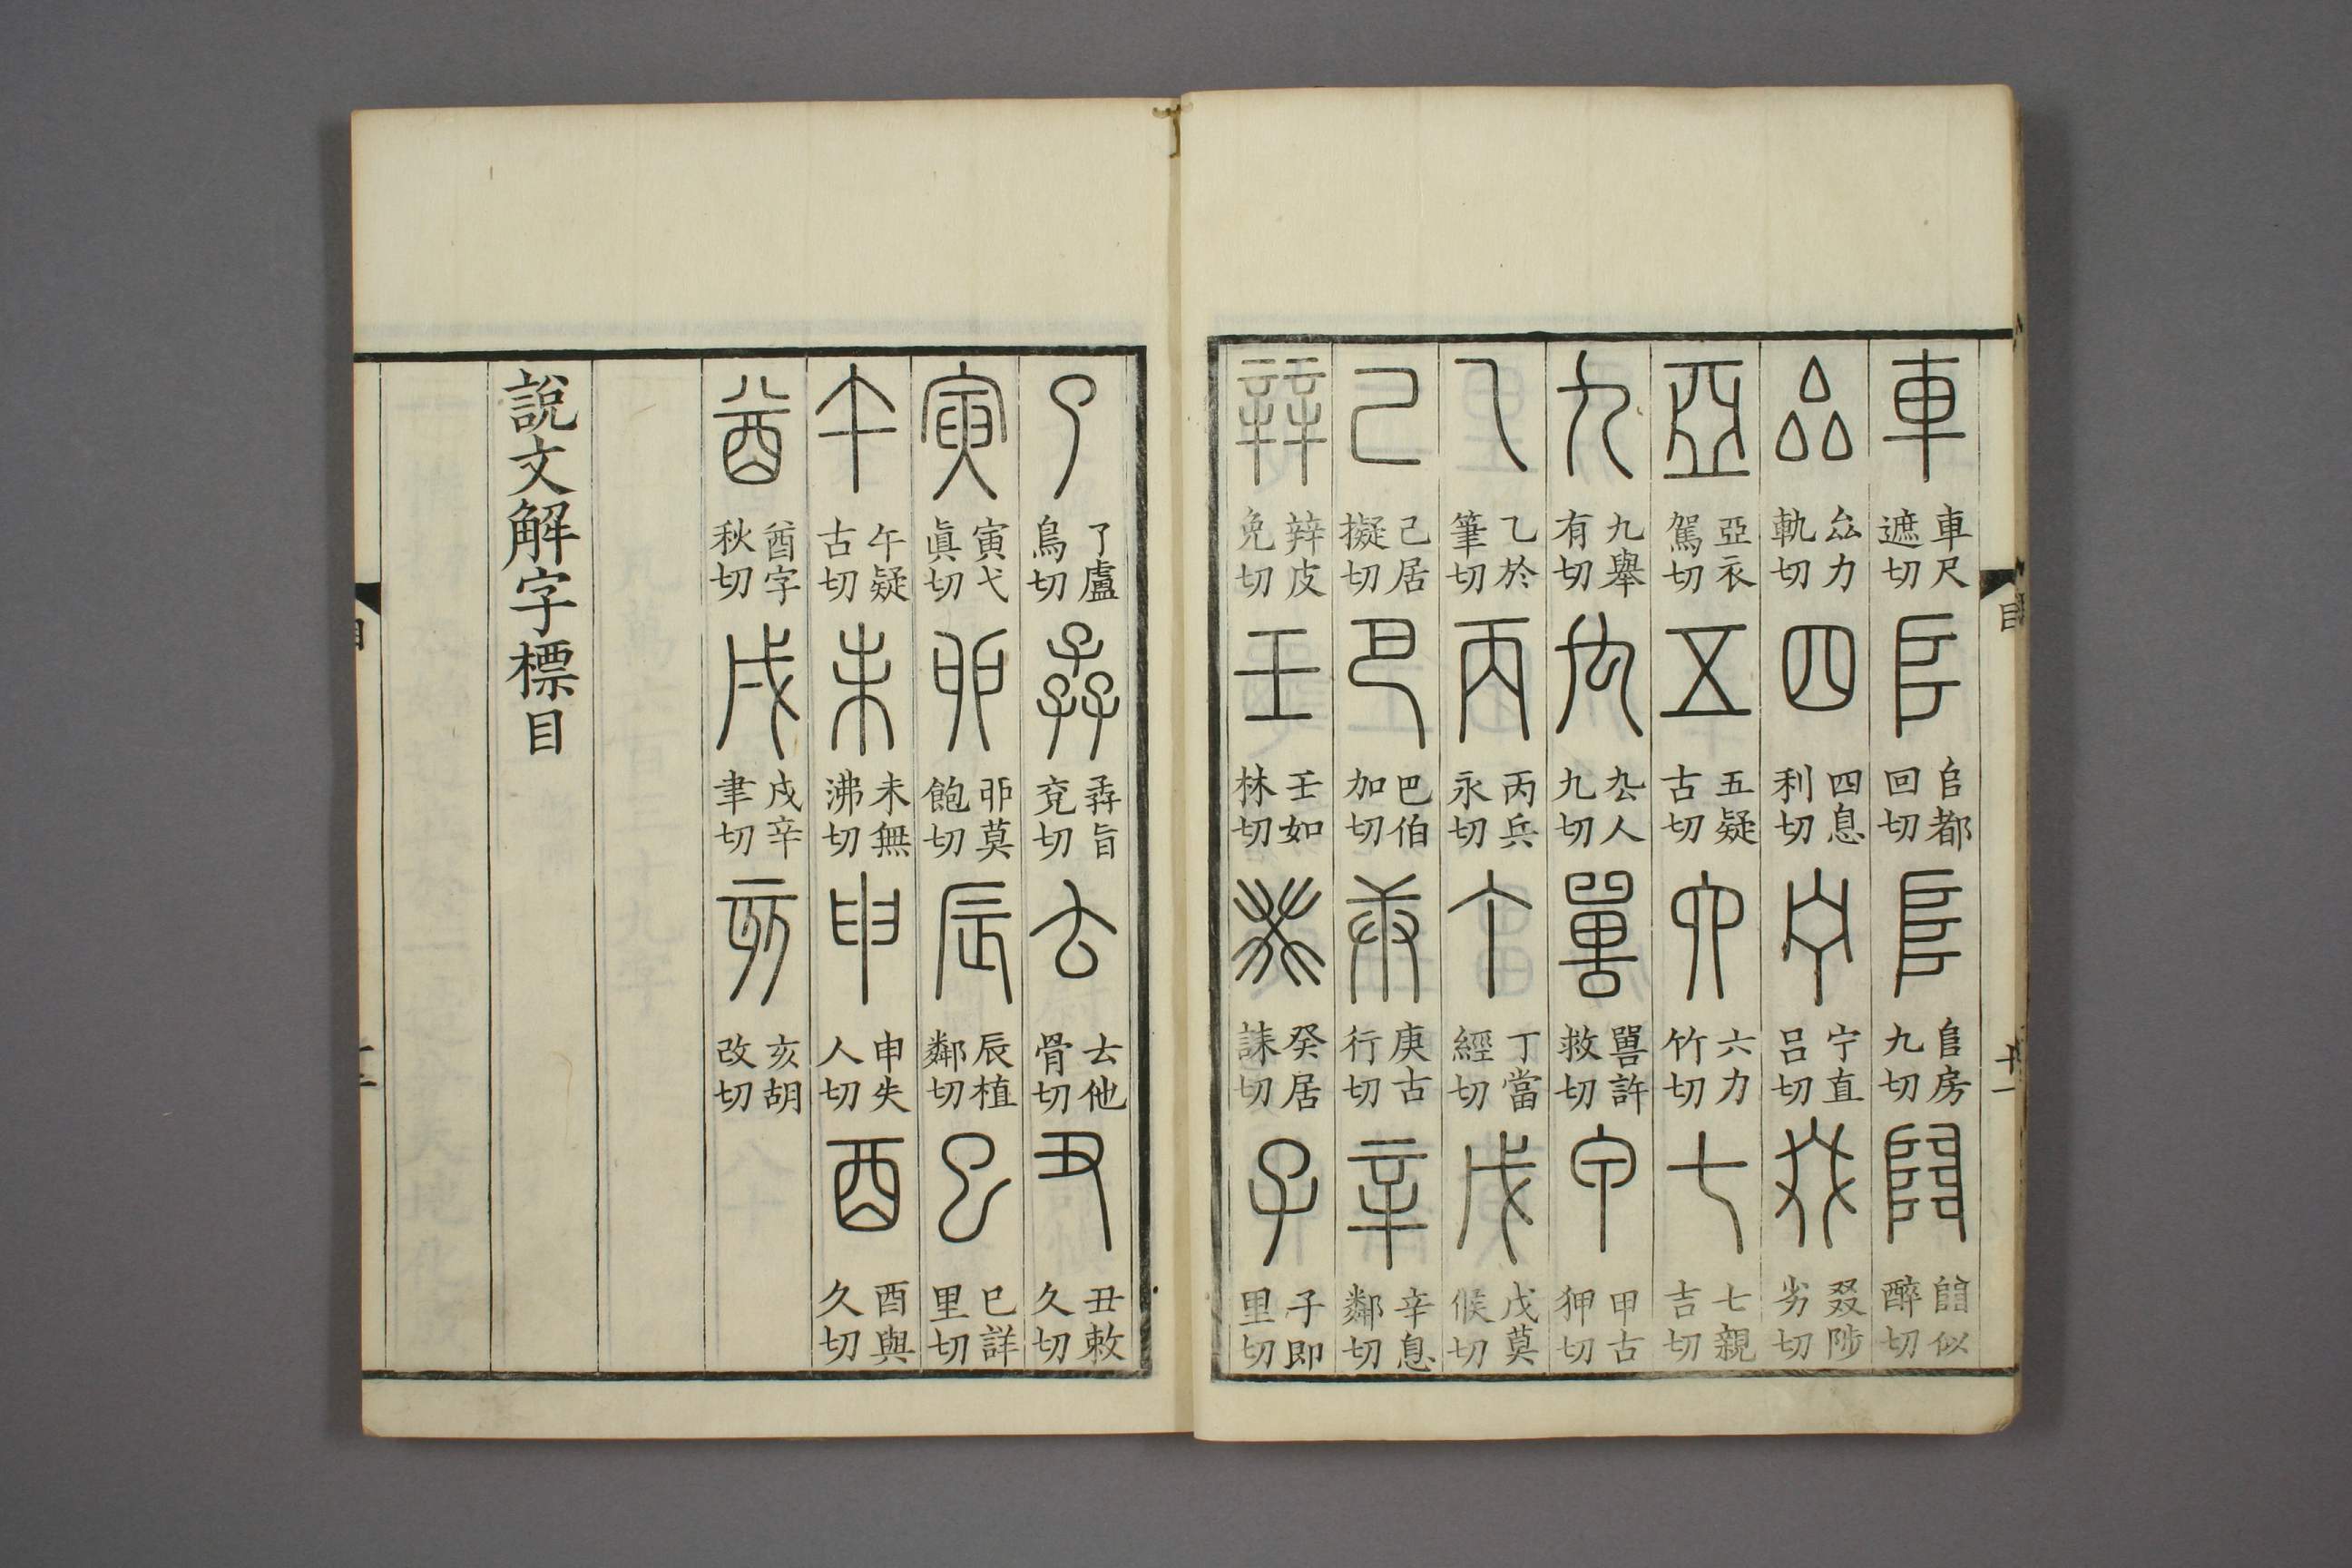 目 十一
車 車尺遮切 𠂤 𠂤都回切 𨸏 𨸏房九切 𨺅 𨺅似醉切
厽 厽力軌切 四 四息利切 宁 宁直呂切 叕 叕陟劣切
亞 亞衣駕切 五 五疑古切 六 六力竹切 七 七親吉切
九 九舉有切 禸 禸人九切 嘼 嘼許救切 甲 甲古狎切
乙 乙於筆切 丙 丙兵永切 丁 丁當經切 戊 戊莫候切
己 己居擬切 巴 巴伯加切 庚 庚古行切 辛 辛息鄰切
辡 辡皮免切 壬 壬如林切 癸 癸居誄切 子 子即里切
了 了盧鳥切 孨 孨旨兗切 𠫓 𠫓他骨切 丑 丑敕久切
寅 寅弋眞切 卯 卯莫飽切 辰 辰植鄰切 巳 巳詳里切
午 午疑古切 未 未無沸切 申 申失人切 酉 酉與久切
酋 酋字秋切 戌 戌辛聿切 亥 亥胡改切
說文解字標目